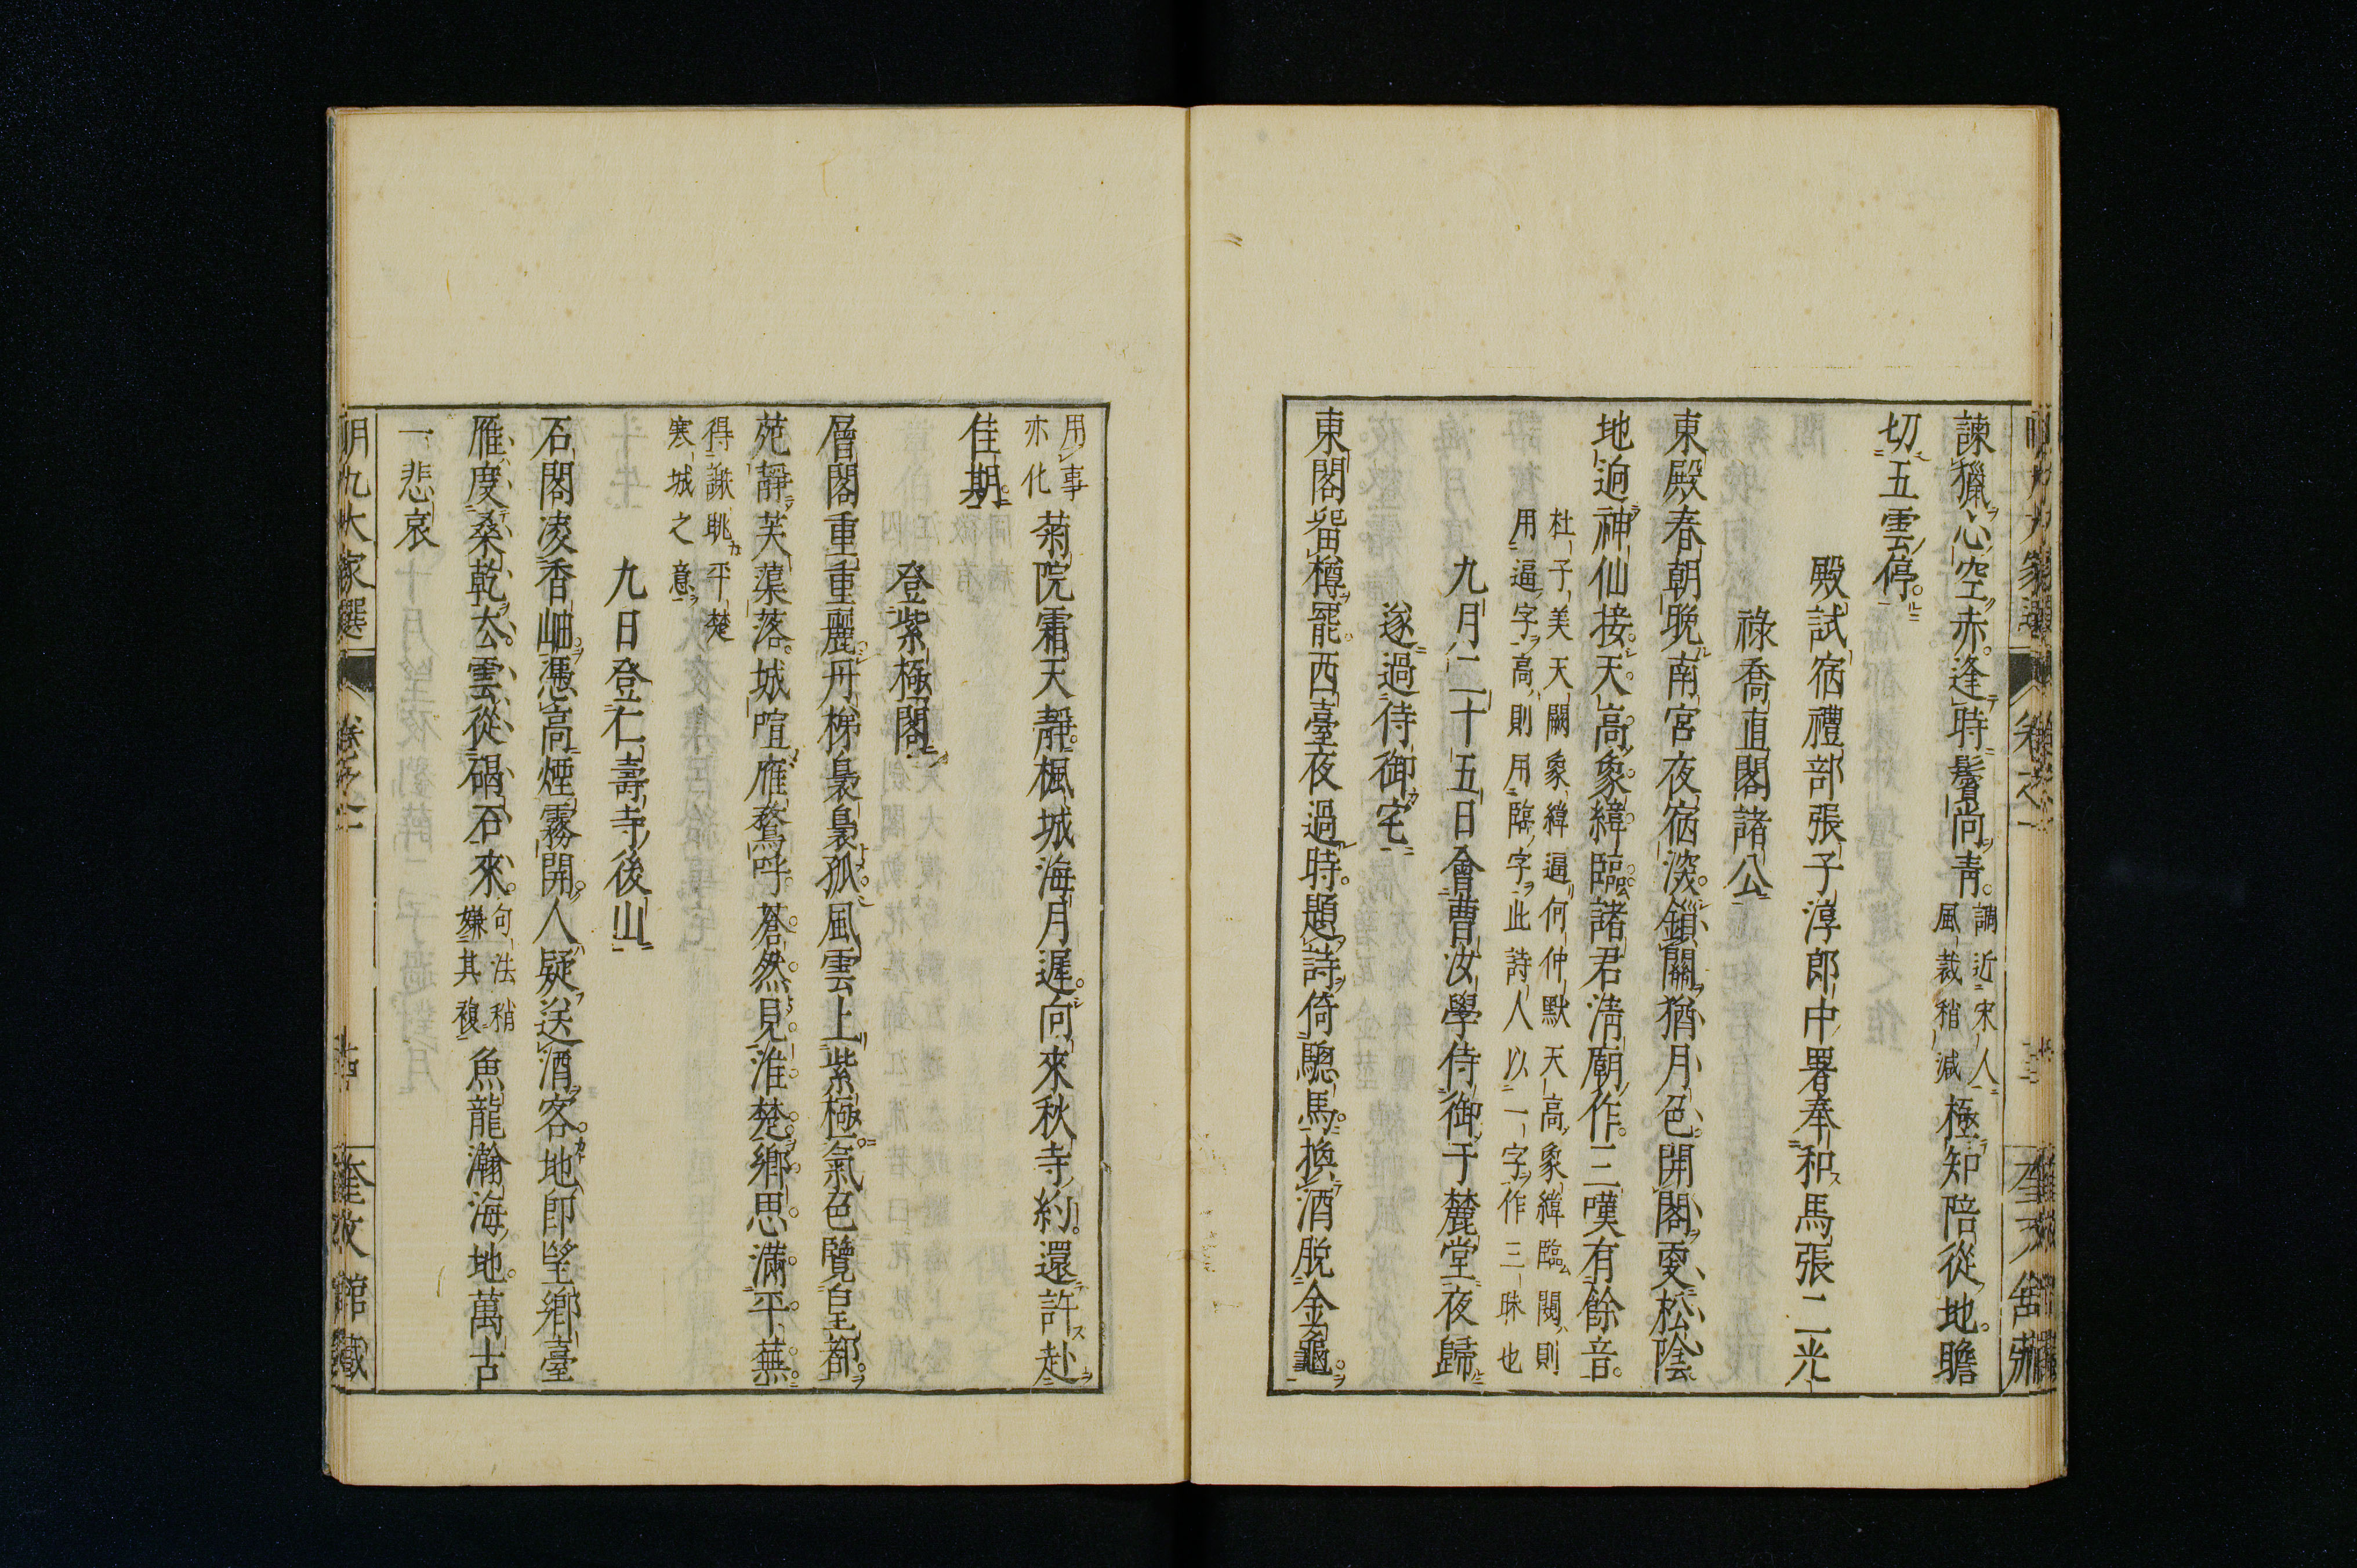 諫獵心空赤逢時鬢尚青調近宋人風裁稍減極知陪從地瞻
切五雲停
殿試宿禮部張子淳郎中署奉和馬張二光
祿喬直閣諸公
東殿春朝晩南宮夜宿深鎖闈猶月色開閣更松陰
地逈神仙接天高象緯臨諸君淸廟作三嘆有餘音
杜子美天闕象緯逼何仲默天高象緯臨闕則
用逼字高則用臨字此詩人以一字作三昧也
九月二十五日會曹汝學侍御于麓堂夜歸
遂過侍御宅
東閣畱樽罷西臺夜過時題詩倚驄馬換酒脱金龜
用事
亦化
菊院霜天靜楓城海月遲向來秋寺約還許赴
佳期
登紫極閣
層閣重重麗丹梯裊裊孤風雲上紫極氣色覽皇都
苑靜芙蕖落城喧雁鶩呼蒼然見淮楚鄉思滿平蕪
得謝眺平楚
寒城之意
九日登仁壽寺後山
石閣凌香岫憑高煙霧開人疑送酒客地卽望鄉臺
雁度桑乾去雲從碣石來句法稍嫌其複魚龍瀚海地萬古
一悲哀
明九大家選
卷之二
奎文館藏